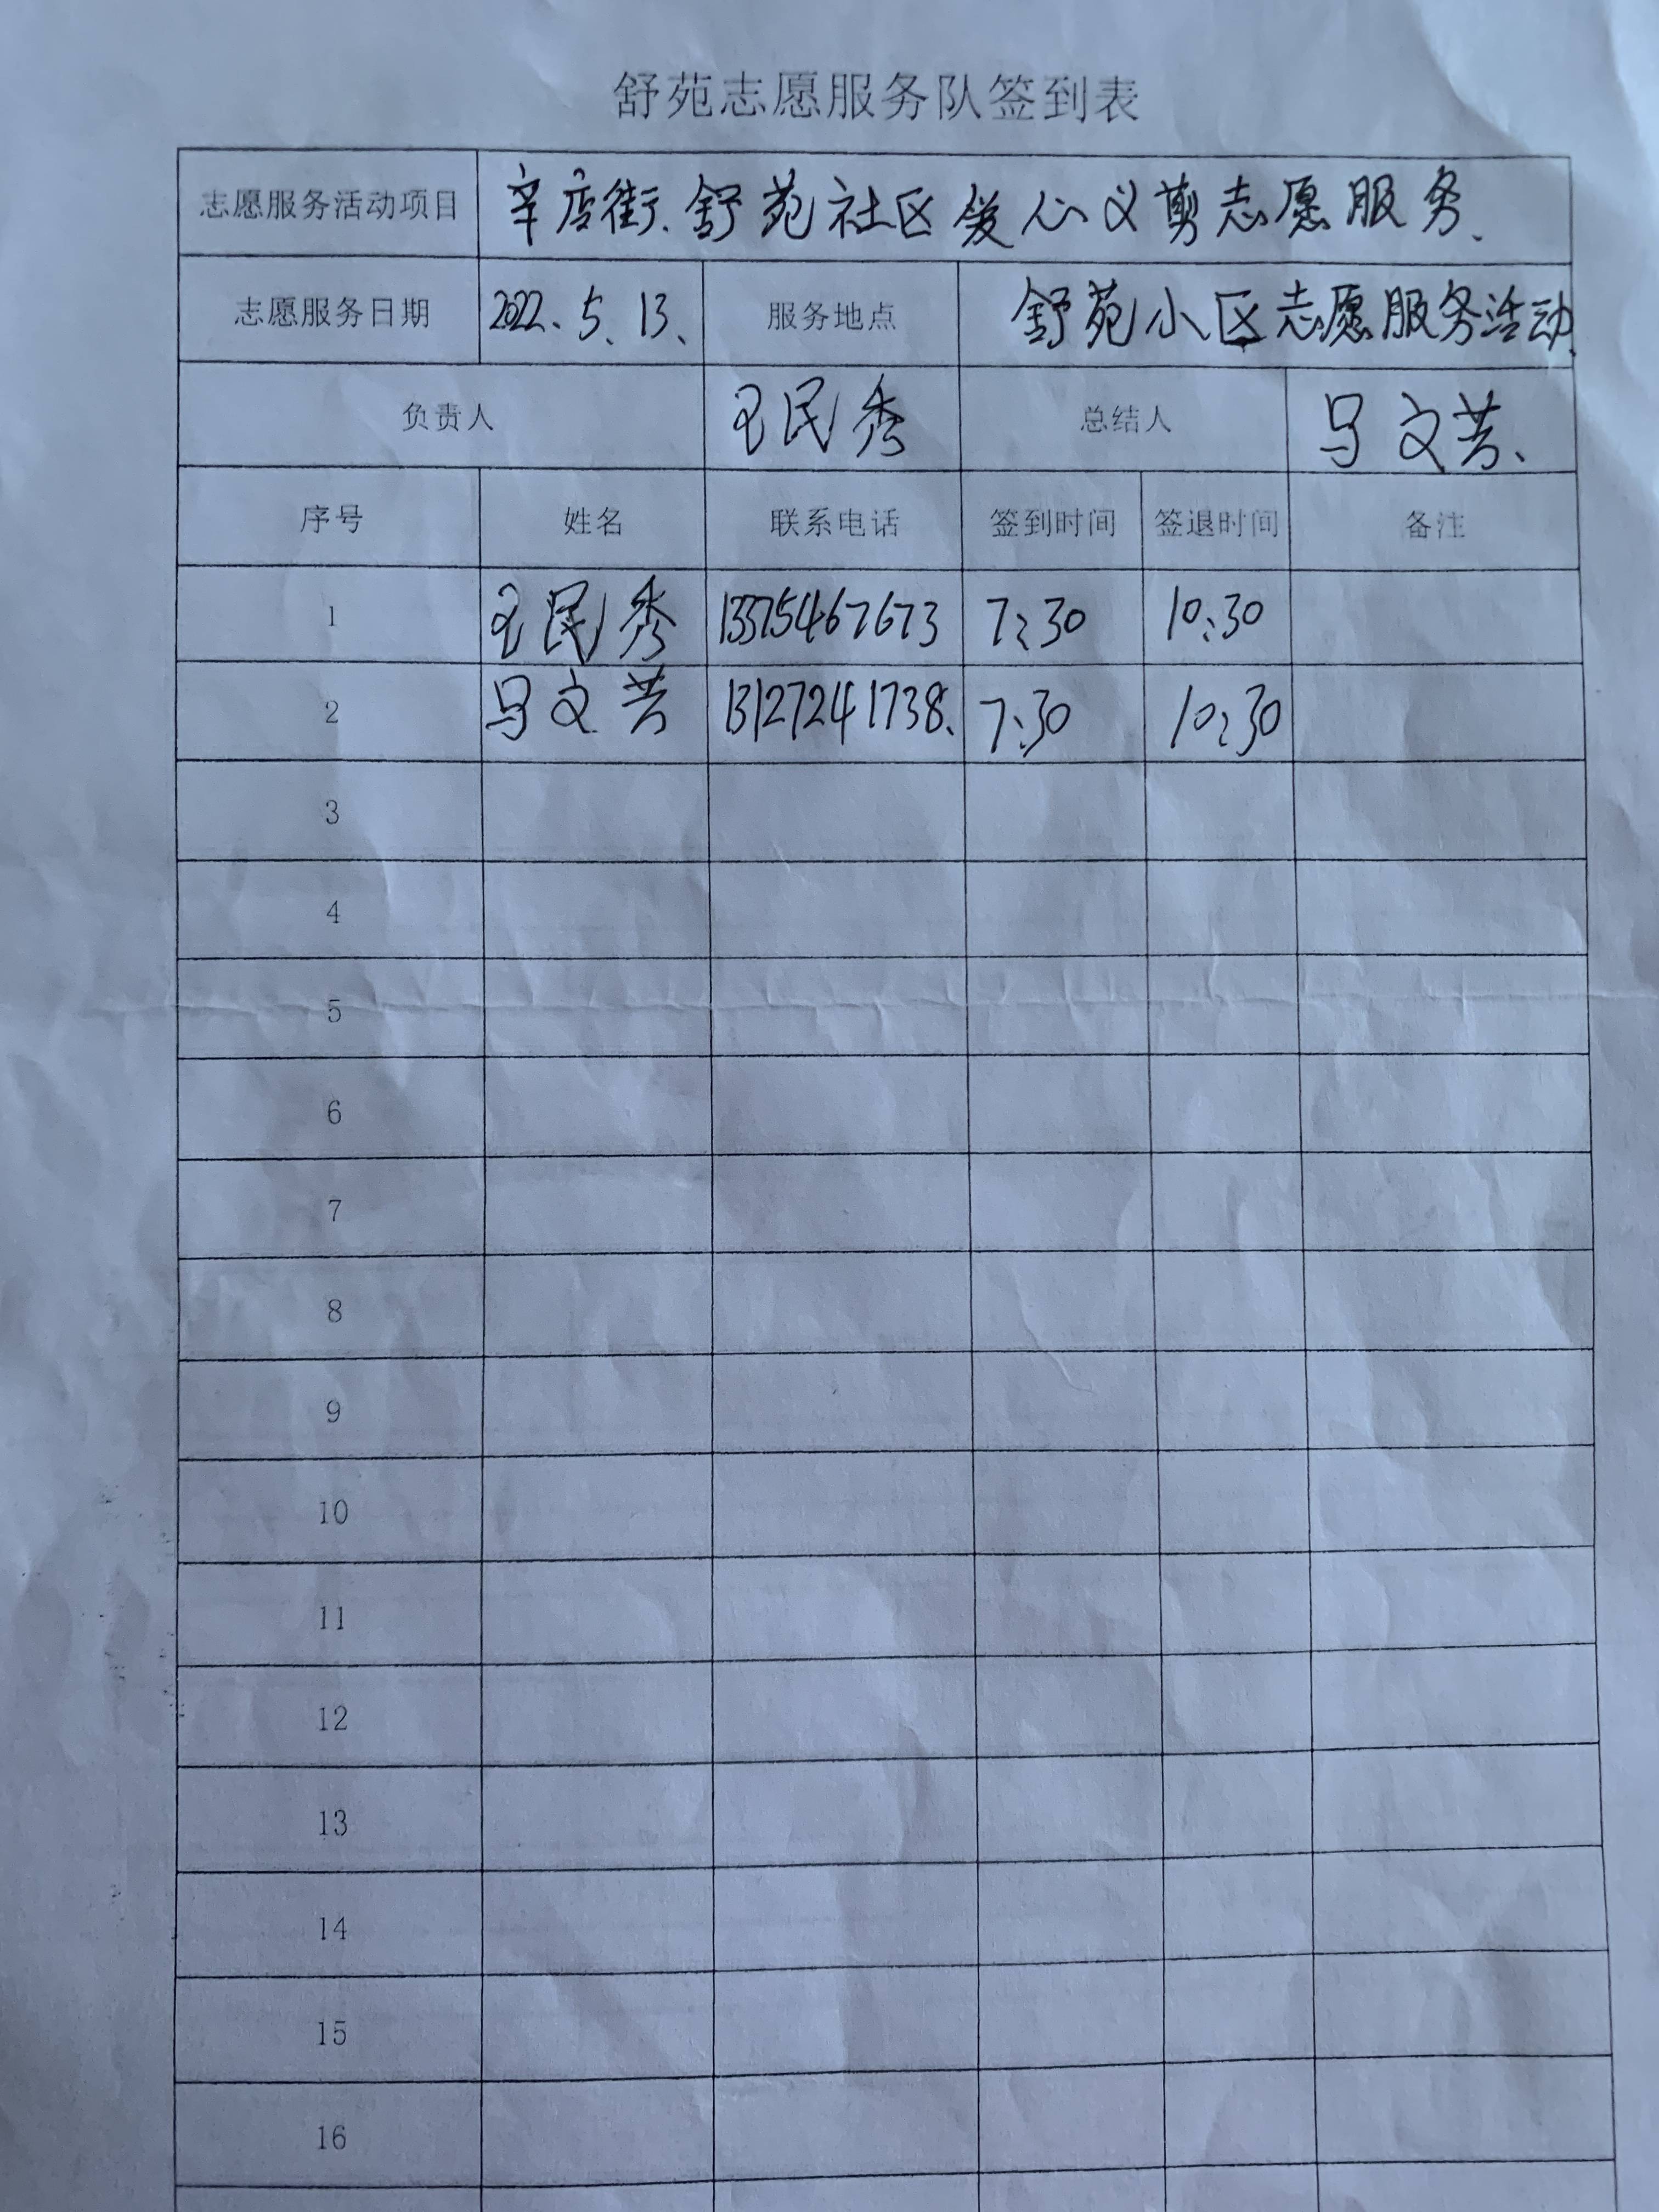 舒苑志愿服务队签到表
志愿服务活动项目 辛店街、舒苑社区爱心义剪志愿服务、
志愿服务日期 2022、5、13、 服务地点 舒苑小区志愿服务活动、
负责人 王民秀 总结人 马文芸、
序号 姓名 联系电话 签到时间 签退时间 备注
1 王民秀 7:30 10:30
2 马文芸 13127241738、 7:30 10:30
3
4
5
6
7
8
9
10
11
12
13
14
15
16